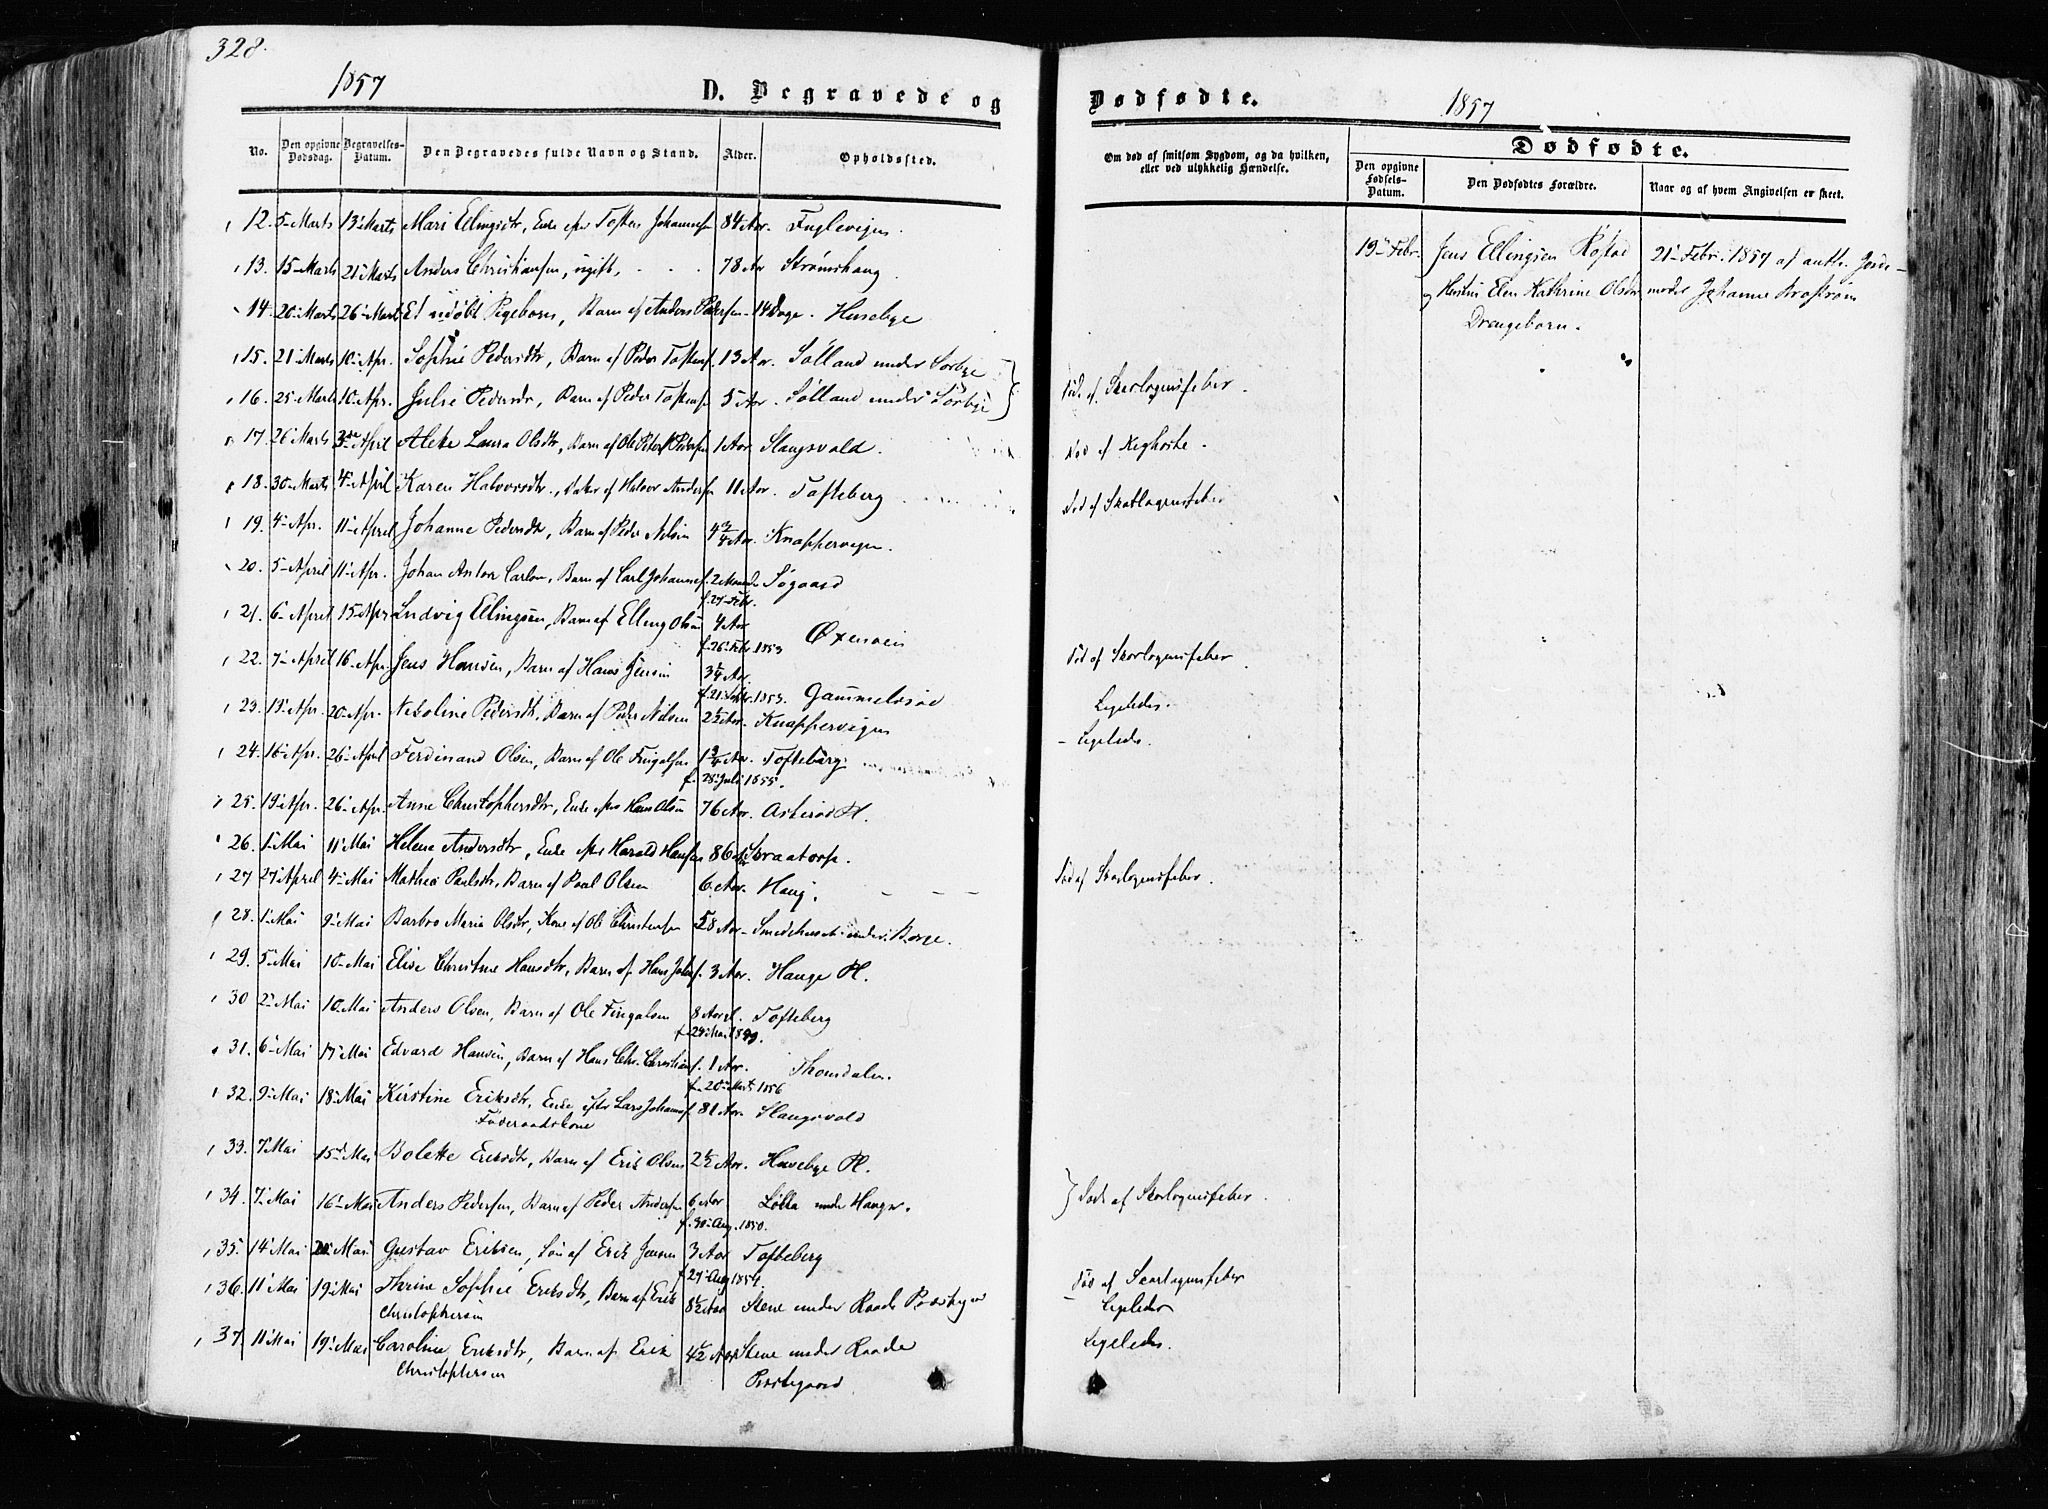 328.
1857
D. Begravede og
Dødfødte.
1857
No.
Den opgivne Dødsdag.
Begravelses-Datum.
Den Begravedes fulde Navn og Stand.
Alder.
Opholdssted.
Om død af smitsom Sygdom, og da hvilken, eller ved ulykkelig Hændelse.
Dødfødte.
Den opgivne Fødsels-Datum.
Den Dødfødtes Forældre.
Naar og af hvem Angivelsen er skeet.
12. 5 Marts 13 Marts Mari Ellingsdtr, Enke efter Tosten Johannesen 84 Aar. Fuglevigen.
13. 15 Marts 21 Marts Anders Christiansen, ugift, 78 Aar Strømshaug
14. 20 Marts 26 Marts Et udøbt Pigebarn, Barn af Anders Pedersen 14 Dage. Husebye
15. 21 Marts 10 Apr. Sophie Pedersdtr, Barn af Peder Tostensen 13 Aar. Sølland under Sørbye
16. 25 Marts 10 Apr. Julie Pedersdr, Barn af Peder Tostensen 5 Aar. Sølland under Sørbye Død af Skarlagensfeber.
17. 26 Marts 3 April Laura Olsdtr, Barn af Ole Pedersen 1 Aar Slangsvold. Død af Kighoste.
18. 30 Marts 4 April Karen Halvorsdtr., Datter af Halvor Andersen 11 Aar. Tofteberg Død af Skarlagensfeber
19. 4 Apr. 11 April Johanne Pedersdtr, Barn af Peder Nilsen 4 3/4 Aar. Knappervigen.
20. 5 April 11 Apr. Johan Anton Carlsen, Barn af Carl Johannesen 2 Maaneder Søgaard
f. 27 Febr.
21. 6 April 15 Apr Ludvig Ellingsen, Barn af Elling Olsen 4 Aar Oxenøen
f. 26 Febr. 1853
22. 7 April 16 Apr. Jens Hansen, Barn af Hans Jensen 3 Aar. Død af Skarlagensfeber
f. 21 1853. Gammelsrød Ligeledes.
23. 13 Apr. 20 Apr. Pedersdtr, Barn af Peder Nilsen 2 1/2 Aar. Knappervigen Ligeleds.
24. 16 Apr. 26 April Ferdinand Olsen, Barn af Ole Fingalsen 1 3/4 Aar. Tofteberg.
f. 28 Juli 1855.
25. 19 Apr. 26 Apr. Anne Christophersdtr, Enke efter Hans Olsen 76 Aar. Askerød Pl.
26. 1 Mai 11 Mai Helene Andersdtr, Enke efter Harald Hansen 86 Aar Skraatorp.
27 27 April 4 Mai Mathea Paulsdtr, Barn af Paul Olsen 6 Aar. Haug. Død af Skarlagensfeber.
28. 1 Mai 9 Mai Barbro Maria Olsdtr, Kone af Ole Christensen 58 Aar Smedehuset under Borge.
29. 5 Mai 10 Mai Elise Christine Hansdtr, Barn af Hans 3 Aar. Hauge Pl.
30 2 Mai 10 Mai Anders Olsen, Barn af Ole Fingalsen 8 Aar Tofteberg
f. 24 Mai 1849.
31. 6 Mai 17 Mai Edvard Hansen, Barn af Hans Chr. Christiansen 1 Aar. Thomdalen.
f. 20 Marts 1856
32. 9 Mai 18 Mai Kirstine Eriksdtr, Enke efter Lars Johannesen 81 Aar. Slangsvold
Føderaadskone
33. 7 Mai 15 Mai Bolette Eriksdtr, Barn af Erik Olsen 2 1/2 Aar. Husebye Pl.
34. 7 Mai 16 Mai Anders Pedersen, Barn af Peder Andersen 6 Aar Løkka under Hauge. Død af Skarlagensfeber.
f. 30 Aug. 1850.
35. 14 Mai 20 Mai Gustav Eriksen, Søn af Erik Jensen 3 Aar Tofteberg Død af Skarlagensfeber
f. 27 Aug 1854.
36. 11 Mai 19 Mai Thrine Sophie Eriksdtr, Barn af Erik Christophersen 8 1/2 Aar Stene under Raade Præstegaard Ligeledes
37. 11 Mai 19 Mai Caroline Eriksdtr, Barn af Erik Christophersen 4 1/2 Aar Stene under Raade Præstegaard Ligeledes.
19 Febr. Jens Ellingsen Røstad 21 Febr. 1857 af autr. Jorde-
og Hustru Elen Kathrine Olsdtr moder Johanne Brostrøm
Drengebarn.